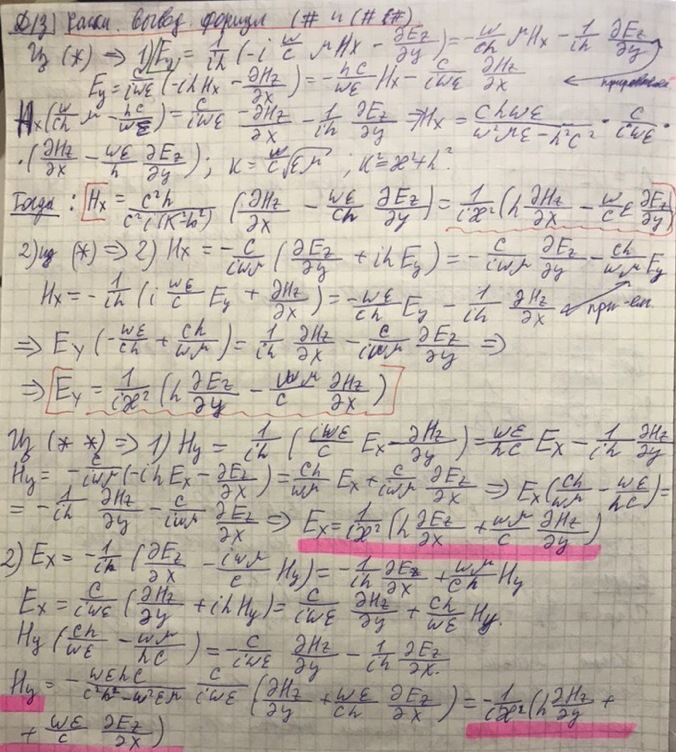 Д/З) Распис. вывод формул (# и (##))
Из (*) ⇒ 1) Ey = 1/(ih) (-i w/c μHx - ∂Ez/∂y) = -w/(ch) μHx - 1/(ih) ∂Ez/∂y
Ey = c/(iwε) (-ihHx - ∂Hz/∂x) = -hc/(wε) Hx - c/(iwε) ∂Hz/∂x
Hx(w/(ch) μ - hc/(wε)) = c/(iwε) ∂Hz/∂x - 1/(ih) ∂Ez/∂y ⇒ Hx = chwε/(w²με - h²c²) · c/(iwε) ·
· (∂Hz/∂x - wε/h ∂Ez/∂y); K = w/c √εμ; K² = æ² + h².
Тогда: Hx = c²h/(c²i(K²-h²)) (∂Hz/∂x - wε/(ch) ∂Ez/∂y) = 1/(iæ²) (h ∂Hz/∂x - w/c ε ∂Ez/∂y)
2) из (*) ⇒ 2) Hx = -c/(iwμ) (∂Ez/∂y + ihEy) = -c/(iwμ) ∂Ez/∂y - ch/(wμ) Ey
Hx = -1/(ih) (i wε/c Ey + ∂Hz/∂x) = -wε/(ch) Ey - 1/(ih) ∂Hz/∂x
⇒ Ey (-wε/(ch) + ch/(wμ)) = 1/(ih) ∂Hz/∂x - c/(iwμ) ∂Ez/∂y ⇒
⇒ Ey = 1/(iæ²) (h ∂Ez/∂y - wμ/c ∂Hz/∂x)
Из (**) ⇒ 1) Hy = 1/(ih) (iwε/c Ex - ∂Hz/∂y) = wε/(hc) Ex - 1/(ih) ∂Hz/∂y
Hy = -c/(iwμ) (-ihEx - ∂Ez/∂x) = ch/(wμ) Ex + c/(iwμ) ∂Ez/∂x ⇒ Ex(ch/(wμ) - wε/(hc)) =
= -1/(ih) ∂Hz/∂y - c/(iwμ) ∂Ez/∂x ⇒ Ex = 1/(iæ²) (h ∂Ez/∂x + wμ/c ∂Hz/∂y)
2) Ex = -1/(ih) (∂Ez/∂x - iwμ/c Hy) = -1/(ih) ∂Ez/∂x + wμ/(ch) Hy
Ex = c/(iwε) (∂Hz/∂y + ihHy) = c/(iwε) ∂Hz/∂y + ch/(wε) Hy.
Hy (ch/(wε) - wμ/(hc)) = -c/(iwε) ∂Hz/∂y - 1/(ih) ∂Ez/∂x.
Hy = -wεhc/(c²h²-w²εμ) c/(iwε) (∂Hz/∂y + wε/(ch) ∂Ez/∂x) = -1/(iæ²) (h ∂Hz/∂y +
+ wε/c ∂Ez/∂x)